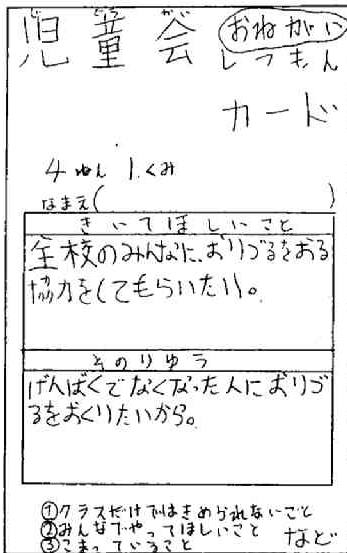 じどうかい
児童会 おねがい
しつもん
カード
4ねん1くみ
なまえ( )
きいてほしいこと
全校のみんなに、おりづるをおる
協力をしてもらいたい。
そのりゆう
げんばくでなくなった人におりづ
るをおくりたいから。
①クラスだけではきめられないこと
②みんなでやってほしいこと
③こまっていること など